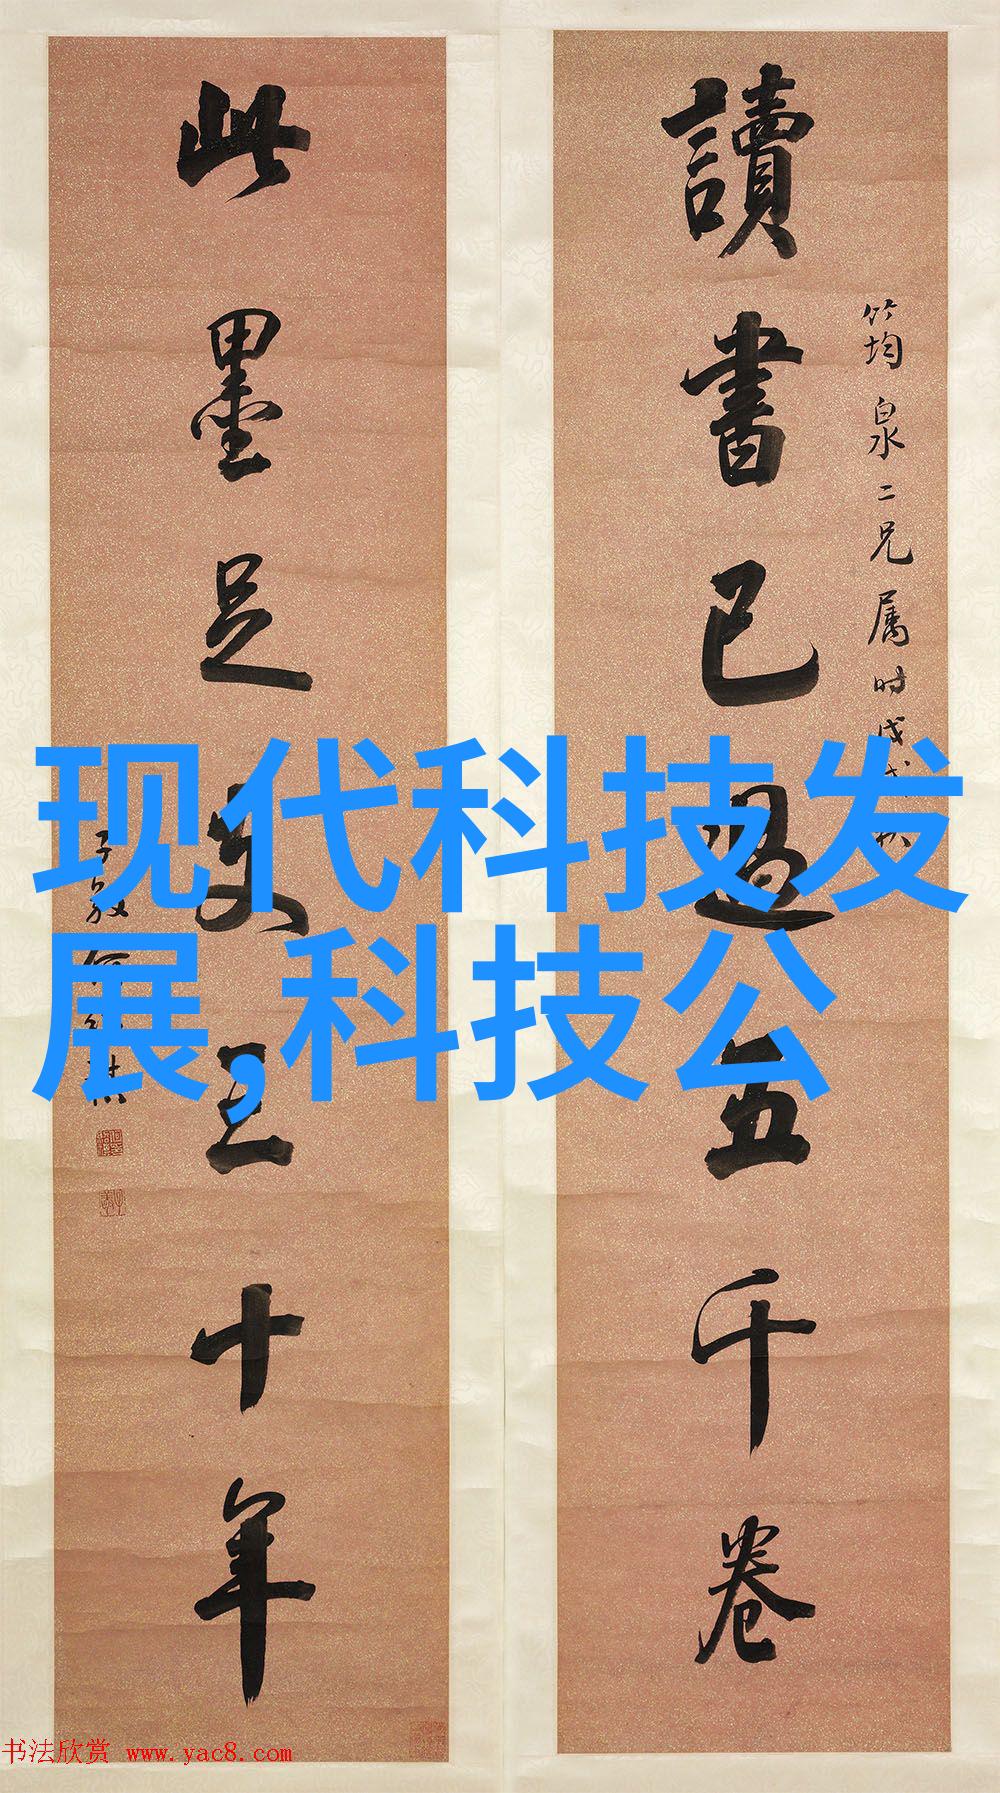 讀書已過五千卷
竹均泉二兄属時戊
此墨足支三十年
子毅何
现代科技发
展,科技公
书法欣赏 www.yac8.com